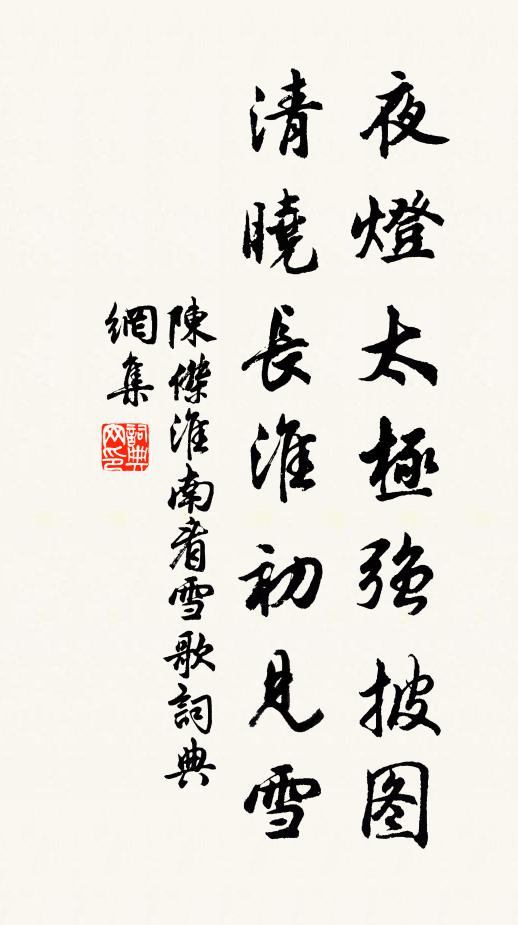 夜燈太極強披图
清曉長淮初見雪
陳傑淮南看雪歌詞典
網集
詞典
网印